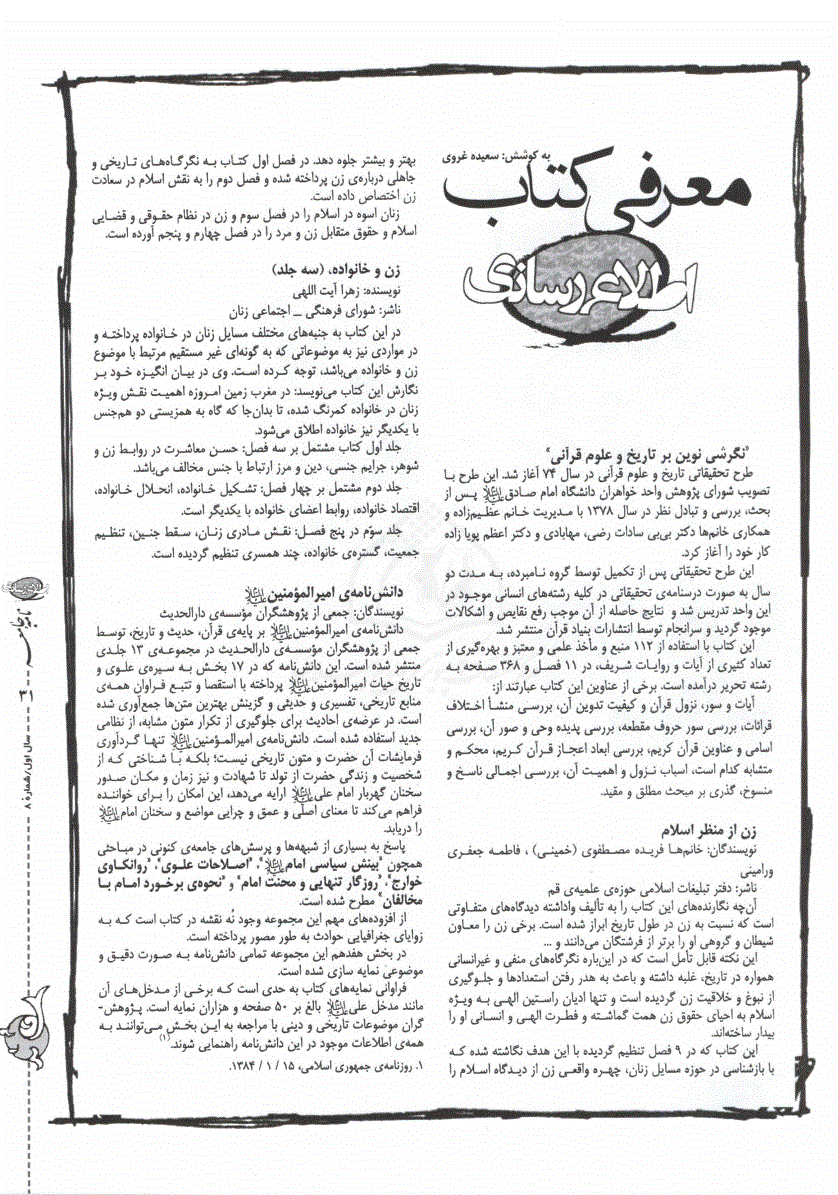 به کوشش: سعیده غروی
معرفی کتاب
اطلاع رسانی
"نگرشی نوین بر تاریخ و علوم قرآنی"
طرح تحقیقاتی تاریخ و علوم قرآنی در سال ۷۴ آغاز شد. این طرح با
تصویب شورای پژوهش واحد خواهران دانشگاه امام صادق علیه‌السلام پس از
بحث، بررسی و تبادل نظر در سال ۱۳۷۸ با مدیریت خانم عظیم‌زاده و
همکاری خانم‌ها دکتر بی‌بی سادات رضی، مهابادی و دکتر اعظم پویا زاده
کار خود را آغاز کرد.
این طرح تحقیقاتی پس از تکمیل توسط گروه نامبرده، به مدت دو
سال به صورت درسنامه‌ی تحقیقاتی در کلیه رشته‌های انسانی موجود در
این واحد تدریس شد و نتایج حاصله از آن موجب رفع نقایص و اشکالات
موجود گردید و سرانجام توسط انتشارات بنیاد قرآن منتشر شد.
این کتاب با استفاده از ۱۱۲ منبع و مأخذ علمی و معتبز و بهره‌گیری از
تعداد کثیری از آیات و روایات شریف، در ۱۱ فصل و ۳۶۸ صفحه به
رشته تحریر درآمده است. برخی از عناوین این کتاب عبارتند از:
آیات و سور، نزول قرآن و کیفیت تدوین آن، بررسی منشأ اختلاف
قرائات، بررسی سور حروف مقطعه، بررسی پدیده وحی و صور آن، بررسی
اسامی و عناوین قرآن کریم، بررسی ابعاد اعجاز قرآن کریم، محکم و
متشابه کدام است، اسباب نزول و اهمیت آن، بررسی اجمالی ناسخ و
منسوخ، گذری بر مبحث مطلق و مقید.
زن از منظر اسلام
نویسندگان: خانم‌ها فریده مصطفوی (خمینی) ، فاطمه جعفری
ورامینی
ناشر: دفتر تبلیغات اسلامی حوزه‌ی علمیه‌ی قم
آن‌چه نگارنده‌های این کتاب را به تألیف واداشته دیدگاه‌های متفاوتی
است که نسبت به زن در طول تاریخ ابراز شده است. برخی زن را معاون
شیطان و گروهی او را برتر از فرشتگان می‌دانند و ...
این نکته قابل تأمل است که در این‌باره نگرگاه‌های منفی و غیرانسانی
همواره در تاریخ، غلبه داشته و باعث به هدر رفتن استعدادها و جلوگیری
از نبوغ و خلاقیت زن گردیده است و تنها ادیان راستین الهی به ویژه
اسلام به احیای حقوق زن همت گماشته و فطرت الهی و انسانی او را
بیدار ساخته‌اند.
این کتاب که در ۹ فصل تنظیم گردیده با این هدف نگاشته شده که
با بازشناسی در حوزه مسایل زنان، چهره واقعی زن از دیدگاه اسلام را
بهتر و بیشتر جلوه دهد. در فصل اول کتاب به نگرگاه‌های تاریخی و
جاهلی درباره‌ی زن پرداخته شده و فصل دوم را به نقش اسلام در سعادت
زن اختصاص داده است.
زنان اسوه در اسلام را در فصل سوم و زن در نظام حقوقی و قضایی
اسلام و حقوق متقابل زن و مرد را در فصل چهارم و پنجم آورده است.
زن و خانواده، (سه جلد)
نویسنده: زهرا آیت اللهی
ناشر: شورای فرهنگی ـ اجتماعی زنان
در این کتاب به جنبه‌های مختلف مسایل زنان در خانواده پرداخته و
در مواردی نیز به موضوعاتی که به گونه‌ای غیر مستقیم مرتبط با موضوع
زن و خانواده می‌باشد، توجه کرده است. وی در بیان انگیزه خود بر
نگارش این کتاب می‌نویسد: در مغرب زمین امروزه اهمیت نقش ویژه
زنان در خانواده کمرنگ شده، تا بدان‌جا که گاه به همزیستی دو هم‌جنس
با یکدیگر نیز خانواده اطلاق می‌شود.
جلد اول کتاب مشتمل بر سه فصل: حسن معاشرت در روابط زن و
شوهر، جرایم جنسی، دین و مرز ارتباط با جنس مخالف می‌باشد.
جلد دوم مشتمل بر چهار فصل: تشکیل خانواده، انحلال خانواده،
اقتصاد خانواده، روابط اعضای خانواده با یکدیگر است.
جلد سوّم در پنج فصل: نقش مادری زنان، سقط جنین، تنظیم
جمعیت، گستره‌ی خانواده، چند همسری تنظیم گردیده است.
دانش‌نامه‌ی امیرالمؤمنین علیه‌السلام
نویسندگان: جمعی از پژوهشگران مؤسسه‌ی دارالحدیث
دانش‌نامه‌ی امیرالمؤمنین علیه‌السلام بر پایه‌ی قرآن، حدیث و تاریخ، توسط
جمعی از پژوهشگران مؤسسه‌ی دارالحدیث در مجموعه‌ی ۱۳ جلدی
منتشر شده است. این دانش‌نامه که در ۱۷ بخش به سیره‌ی علوی و
تاریخ حیات امیرالمؤمنین علیه‌السلام پرداخته با استقصا و تتبع فراوان همه‌ی
منابع تاریخی، تفسیری و حدیثی و گزینش بهترین متن‌ها جمع‌آوری شده
است. در عرضه‌ی احادیث برای جلوگیری از تکرار متون مشابه، از نظامی
جدید استفاده شده است. دانش‌نامه‌ی امیرالمؤمنین علیه‌السلام تنها گردآوری
فرمایشات آن حضرت و متون تاریخی نیست؛ بلکه با شناختی که از
شخصیت و زندگی حضرت از تولد تا شهادت و نیز زمان و مکان صدور
سخنان گهربار امام علی علیه‌السلام ارایه می‌دهد، این امکان را برای خواننده
فراهم می‌کند تا معنای اصلی و عمق و چرایی مواضع و سخنان امام علیه‌السلام
را دریابد.
پاسخ به بسیاری از شبهه‌ها و پرسش‌های جامعه‌ی کنونی در مباحثی
همچون "بینش سیاسی امام علیه‌السلام"، "اصلاحات علوی"، "روانکاوی
خوارج"، "روزگار تنهایی و محنت امام" و "نحوه‌ی برخورد امام با
مخالفان" مطرح شده است.
از افزوده‌های مهم این مجموعه وجود نُه نقشه در کتاب است که به
زوایای جغرافیایی حوادث به طور مصور پرداخته است.
در بخش هفدهم این مجموعه تمامی دانش‌نامه به صورت دقیق و
موضوعی نمایه سازی شده است.
فراوانی نمایه‌های کتاب به حدی است که برخی از مدخل‌های آن
مانند مدخل علی علیه‌السلام بالغ بر ۵۰ صفحه و هزاران نمایه است. پژوهش-
گران موضوعات تاریخی و دینی با مراجعه به این بخش می‌توانند به
همه‌ی اطلاعات موجود در این دانش‌نامه راهنمایی شوند.(۱)
۱. روزنامه‌ی جمهوری اسلامی، ۱۵ / ۱ / ۱۳۸۴.
اطلاع رسانی
سال اول/شماره ۸